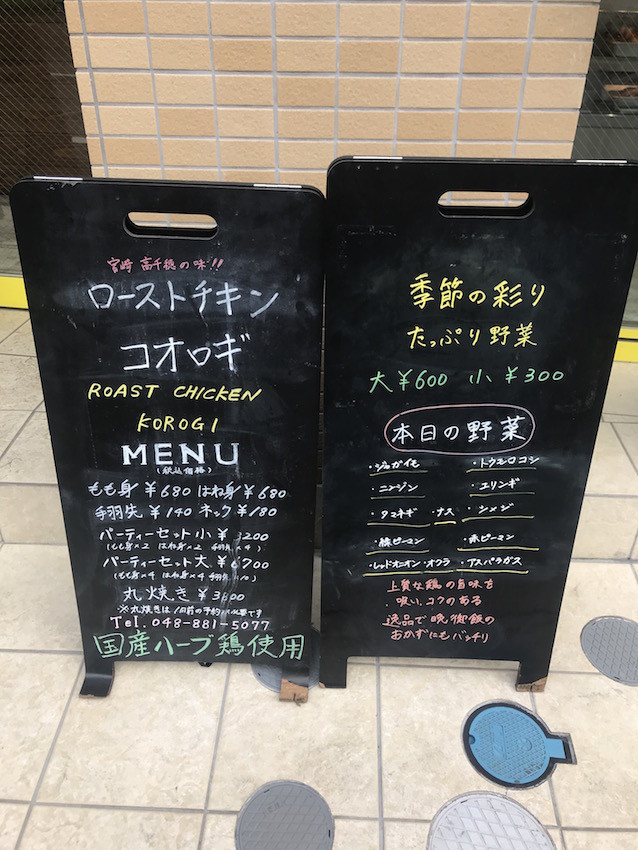 宮崎 高千穂の味!!
ローストチキン
コオロギ
ROAST CHICKEN
KOROGI
MENU
(税込価格)
もも身 ¥680 はね身 ¥680
手羽先 ¥140 ネック ¥180
パーティーセット 小 ¥3200
(もも身×2 はね身×2 手羽先×4)
パーティーセット 大 ¥6700
(もも身×4 はね身×4 手羽先×10)
丸焼き ¥3600
※丸焼きは1日前の予約が必要です
Tel. 048-881-5077
国産ハーブ鶏使用
季節の彩り
たっぷり野菜
大¥600 小¥300
本日の野菜
・ジャガイモ ・トウモロコシ
・ニンジン ・エリンギ
・タマネギ ・ナス ・シメジ
・緑ピーマン ・赤ピーマン
・レッドオニオン・オクラ ・アスパラガス
上質な鶏の旨味を
吸い、コクのある
逸品で晩御飯の
おかずにもバッチリ